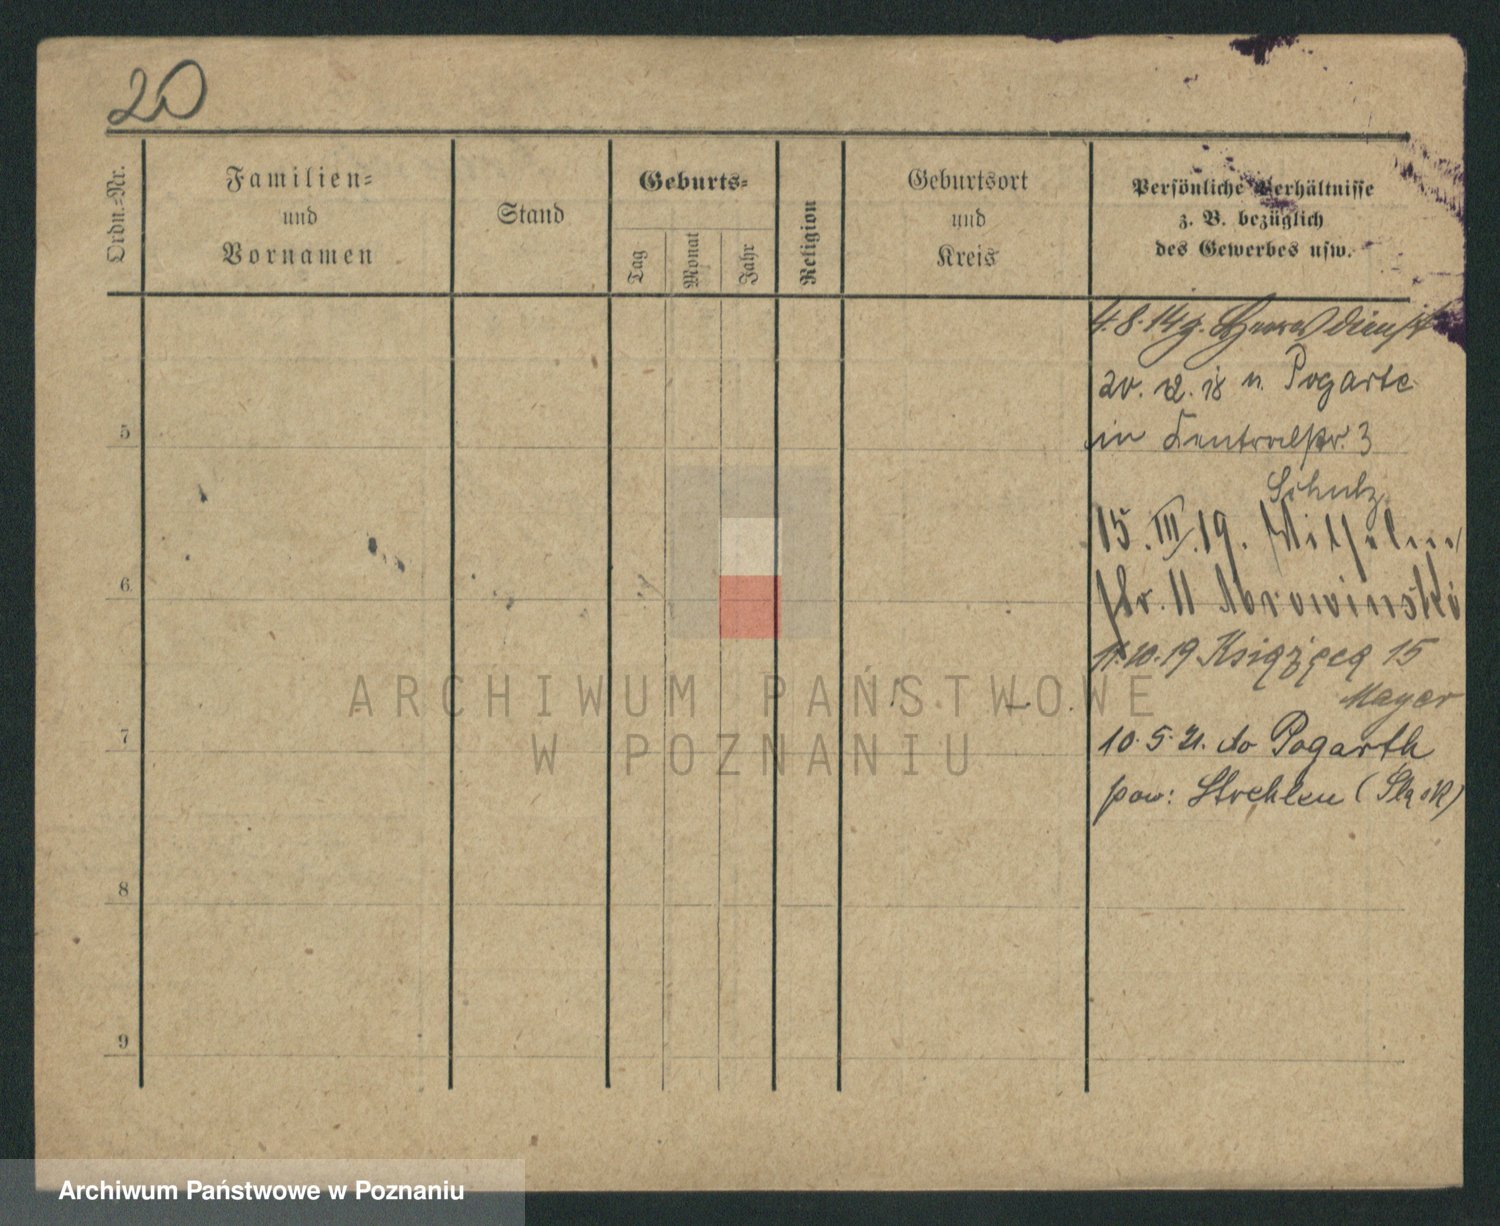 20
Ordn.-Nr.
Familien-
und
Vornamen
Stand
Geburts-
Tag
Monat
Jahr
Religion
Geburtsort
und
Kreis
Persönliche Verhältnisse
z. B. bezüglich
des Gewerbes usw.
4.8.14 z. Heeresdienst
20. 12. 18 v. Pogarte
in Centralstr. 3
Schulz
15. III. 19. Wilhelm
str. 11 Mrowinski
11.10.19 Książęca 15
Mayer
10.5.21. do Pogarth
pow: Strehlen (Śląsk)
5
6
7
8
9
ARCHIWUM PAŃSTWOWE
W POZNANIU
Archiwum Państwowe w Poznaniu